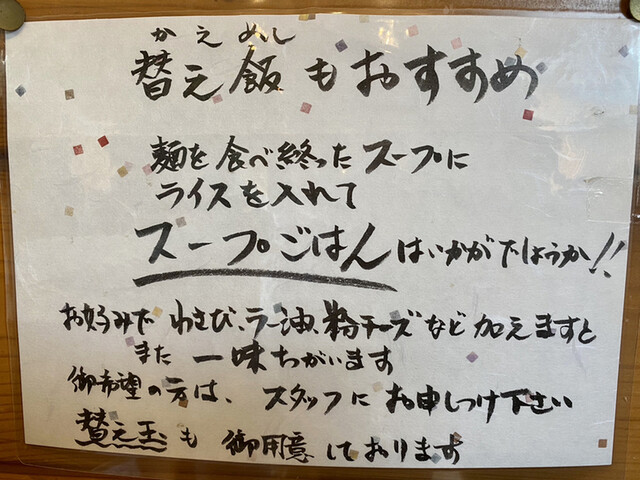 かえめし
替え飯もおすすめ
麺を食べ終ったスープに
ライスを入れて
スープごはんはいかがでしょうか!!
お好みで わさび、ラー油、粉チーズなど加えますと
また 一味ちがいます
御希望の方は、スタッフにお申しつけ下さい
替え玉も御用意しております